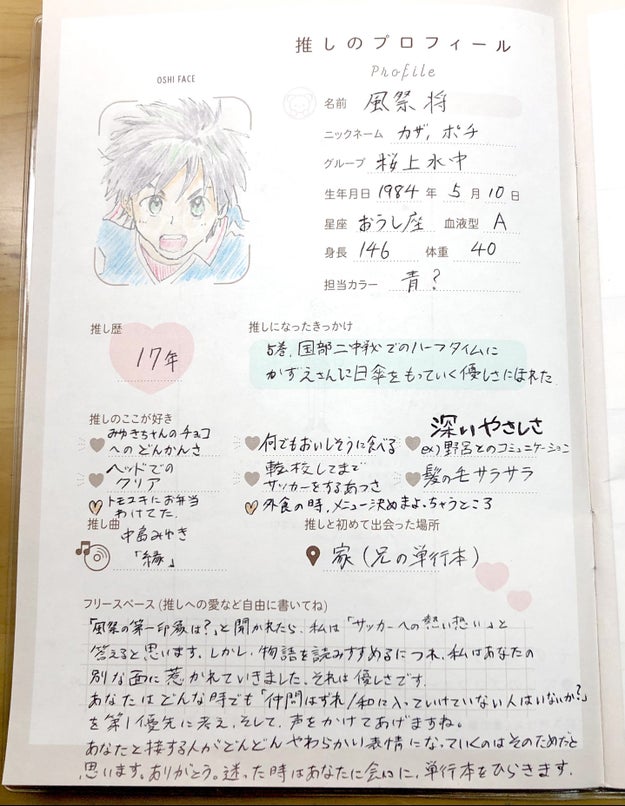 推しのプロフィール
Profile
OSHI FACE
名前 風祭 将
ニックネーム カザ, ポチ
グループ 桜上水中
生年月日 1984 年 5 月 10 日
星座 おうし座 血液型 A
身長 146 体重 40
担当カラー 青?
推し歴
17年
推しになったきっかけ
5巻. 国部二中戦でのハーフタイムに
かずえさんに日傘をもっていく優しさにほれた.
推しのここが好き
みゆきちゃんのチョコ
へのどんかんさ
何でもおいしそうに食べる
深いやさしさ
ex) 野呂とのコミュニケーション
ヘッドでの
クリア
転校してまで
サッカーをするあつさ
髪の毛サラサラ
トモユキにお弁当
わけてた.
外食の時, メニュー決めまよっちゃうところ
推し曲
中島みゆき
「縁」
推しと初めて出会った場所
家 (兄の単行本)
フリースペース (推しへの愛など自由に書いてね)
「風祭の第一印象は?」と聞かれたら. 私は「サッカーへの熱い想い」と
答えると思います. しかし. 物語を読みすすめるにつれ. 私はあなたの
別な面に惹かれていきました. それは優しさです.
あなたはどんな時でも「仲間はずれ/和に入っていけていない人はいないか?」
を第1優先に考え. そして. 声をかけてあげますね.
あなたと接する人がどんどんやわらかい表情になっていくのはそのためだと
思います. ありがとう. 迷った時はあなたに会いに. 単行本をひらきます.